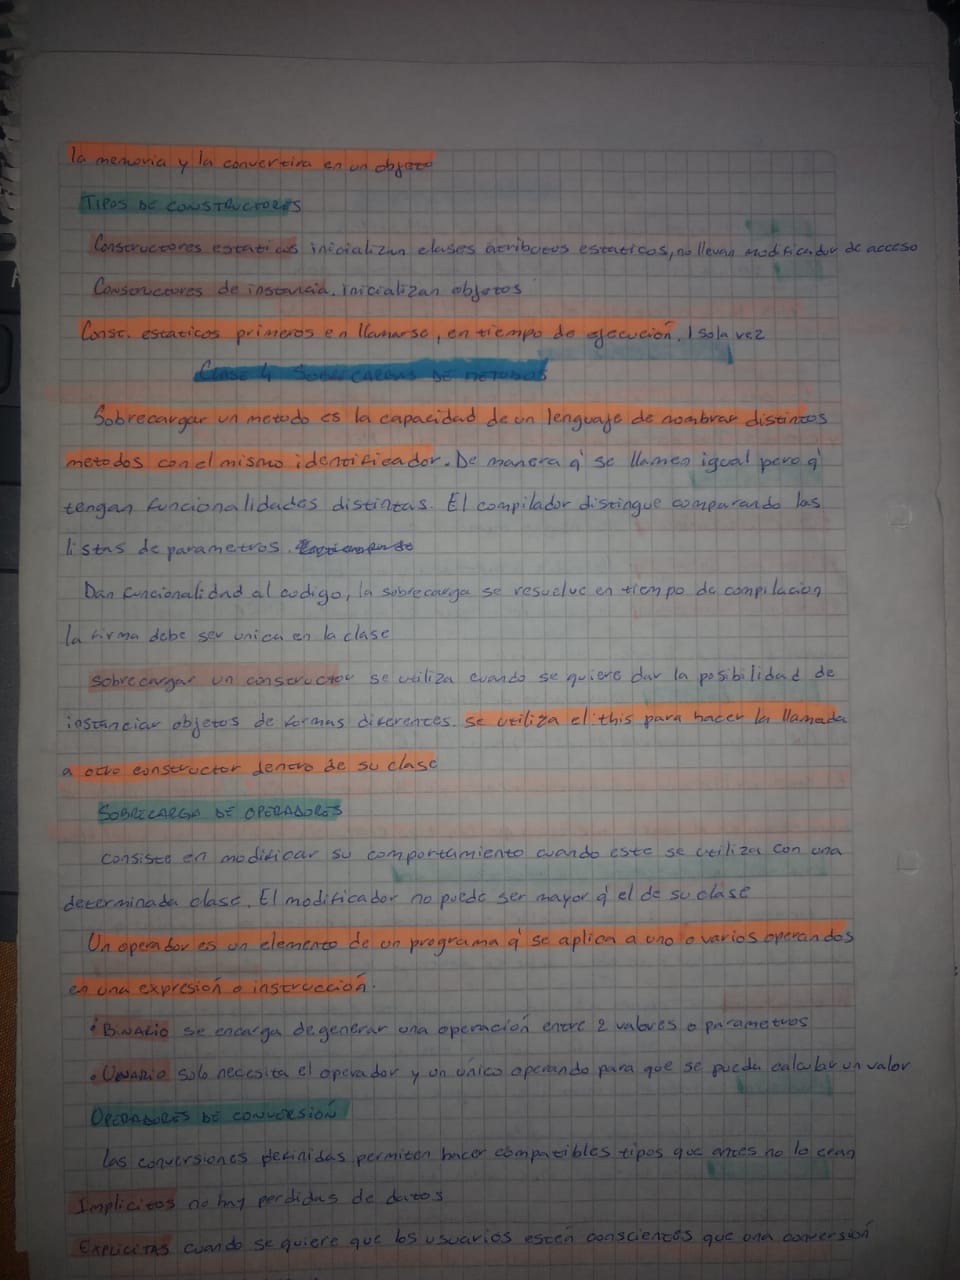 la memoria y la convertira en un objeto
TIPOS DE CONSTRUCTORES
Constructores estaticos inicializan clases atributos estaticos, no llevan modificador de acceso
Constructores de instancia. inicializan objetos
Const. estaticos primeros en llamarse, en tiempo de ejecución. 1 sola vez
CLASE 4 SOBRECARGAS DE METODOS
Sobrecargar un metodo es la capacidad de un lenguaje de nombrar distintos
metodos con el mismo identificador. De manera q' se llamen igual pero q'
tengan funcionalidades distintas. El compilador distingue comparando las
listas de parametros.
Dan funcionalidad al codigo, la sobrecarga se resuelve en tiempo de compilacion
la firma debe ser unica en la clase
Sobrecargar un constructor se utiliza cuando se quiere dar la posibilidad de
instanciar objetos de formas diferentes. se utiliza el this para hacer la llamada
a otro constructor dentro de su clase
SOBRECARGA DE OPERADORES
consiste en modificar su comportamiento cuando este se utiliza con una
determinada clase. El modificador no puede ser mayor q' el de su clase
Un operador es un elemento de un programa q' se aplica a uno o varios operandos
en una expresión o instrucción.
• BINARIO se encarga de generar una operación entre 2 valores o parametros
• UNARIO solo necesita el operador y un único operando para que se pueda calcular un valor
OPERADORES DE CONVERSIÓN
Las conversiones definidas permiten hacer compatibles tipos que antes no lo eran
Implicitos no hay perdidas de datos
EXPLICITAS cuando se quiere que los usuarios estén conscientes que una conversión